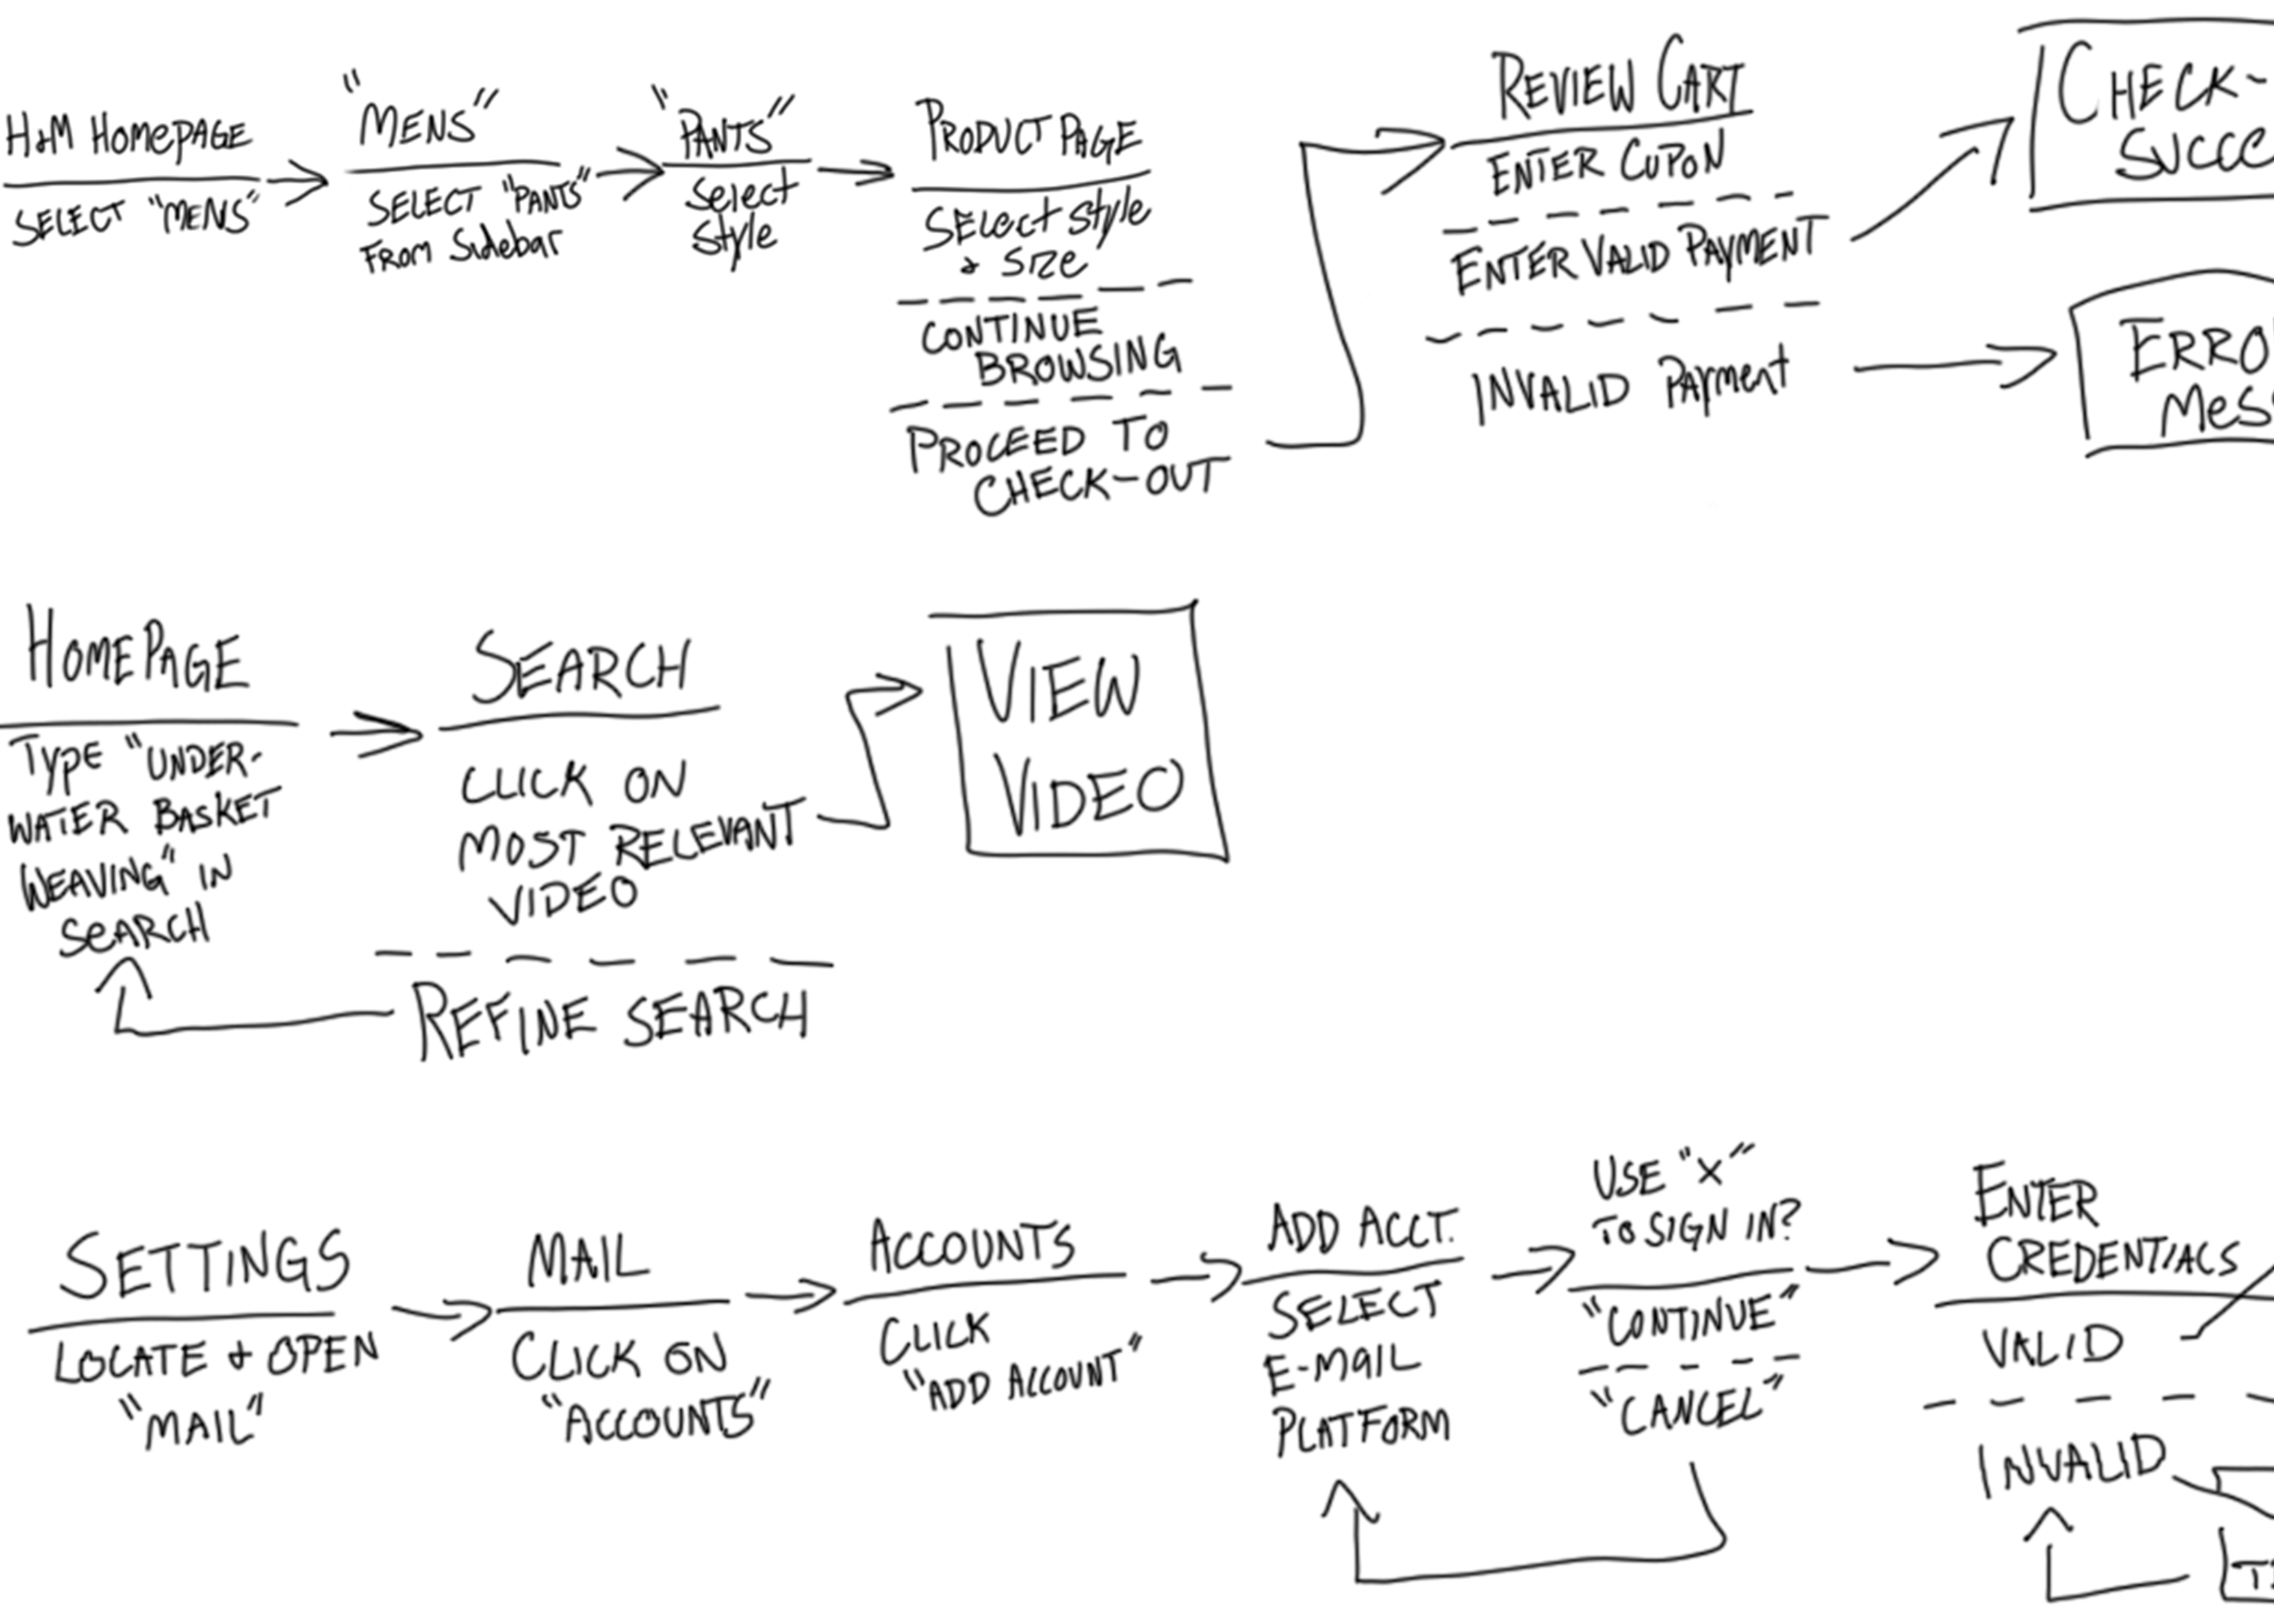 H&M HOMEPAGE
SELECT "MENS"
"MENS"
SELECT "PANTS"
FROM Sidebar
"PANTS"
Select
Style
PRODUCT PAGE
SELect Style
& SIZE
CONTINUE
BROWSING
PROCEED TO
CHECK-OUT
REVIEW CART
ENTER CUPON
ENTER VALID PAYMENT
INVALID Payment
CHECK-
SUCCE
ERRO
MeSS
HOMEPAGE
TYPE "UNDER-
WATER BASKET
WEAVING" IN
SeARCH
SEARCH
CLICK ON
MOST RELEVANT
VIDEO
REFINE SEARCH
VIEW
VIDEO
SETTINGS
LOCATE & OPEN
"MAIL"
MAIL
CLICK ON
"ACCOUNTS"
ACCOUNTS
CLICK
"ADD ACCOUNT"
ADD ACCT.
SELECT
E-MAIL
PLATFORM
USE "X"
TO SIGN IN?
"CONTINUE"
"CANCEL"
ENTER
CREDENTIALS
VALID
INVALID